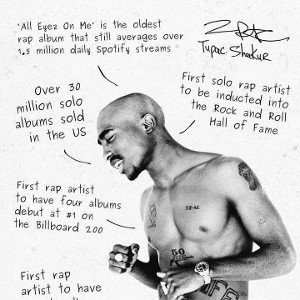 'All Eyez On Me' is the oldest
rap album that still averages over
1.5 million daily Spotify streams
Tupac Shakur
Over 30
million solo
albums sold
in the US
First solo rap artist
to be inducted into
the Rock and Roll
Hall of Fame
First rap artist
to have four albums
debut at #1 on
the Billboard 200
2PAC
First rap
artist to have